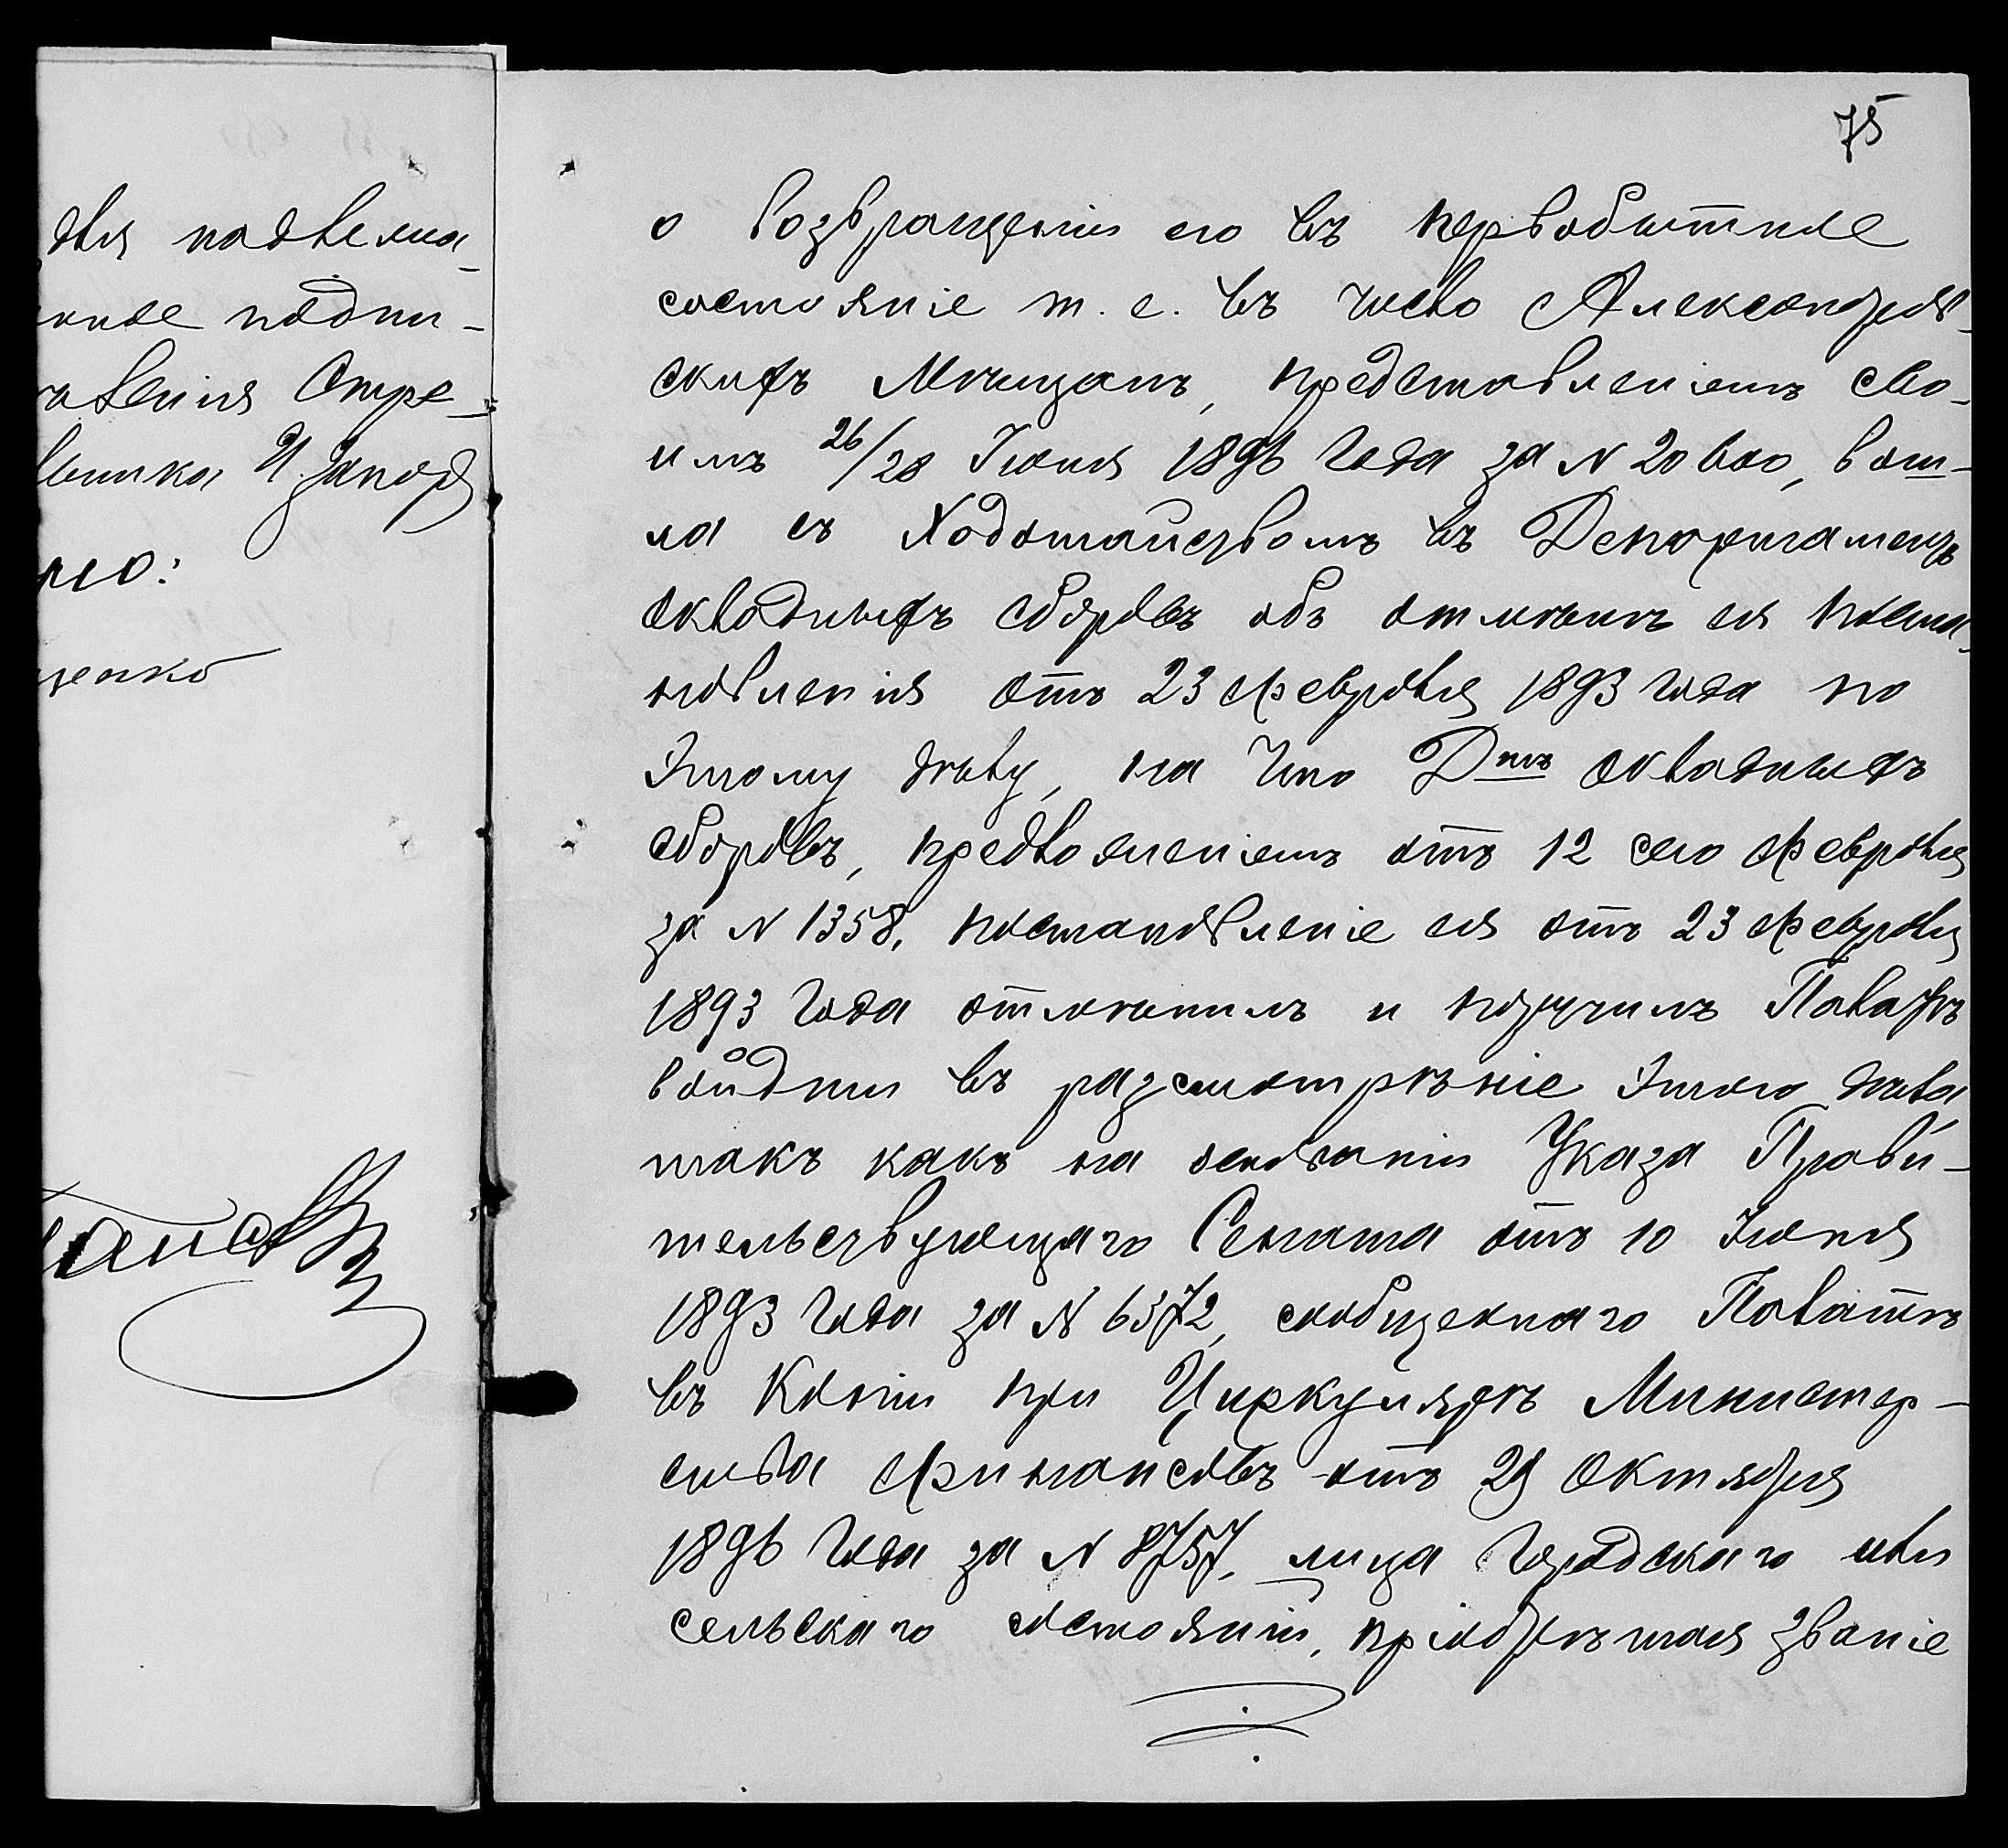 для надлежа-
нное подпи-
авленія Стре-
льника И. Запор
но:
ценко
75
о возвращеніи его въ первобытное
состояніе т. е. въ число Александров-
скихъ Мѣщанъ, представленіемъ сво-
имъ 26/28 Іюня 1896 года за N 20600, вош-
ла съ Ходотайствомъ въ Департаментъ
окладныхъ сборовъ объ отмѣнѣ ея поста-
новленія отъ 23 февраля 1893 года по
этому дѣлу, на что Д-тъ окладныхъ
сборовъ, предложеніемъ отъ 12 сего февраля
за N 1358, постановленіе ея отъ 23 февраля
1893 года отмѣнилъ и поручилъ Палатѣ
войдти въ разсмотрѣніе этого дѣла,
такъ какъ на основаніи Указа Прави-
тельствующаго Сената отъ 10 Іюня
1893 года за N 6372, сообщеннаго Палатѣ
въ Копіи при Циркулярѣ Министер-
ства Финансовъ отъ 29 Октября
1896 года за N 8757, лица городскаго или
сельскаго состоянія, пріобрѣтая званіе